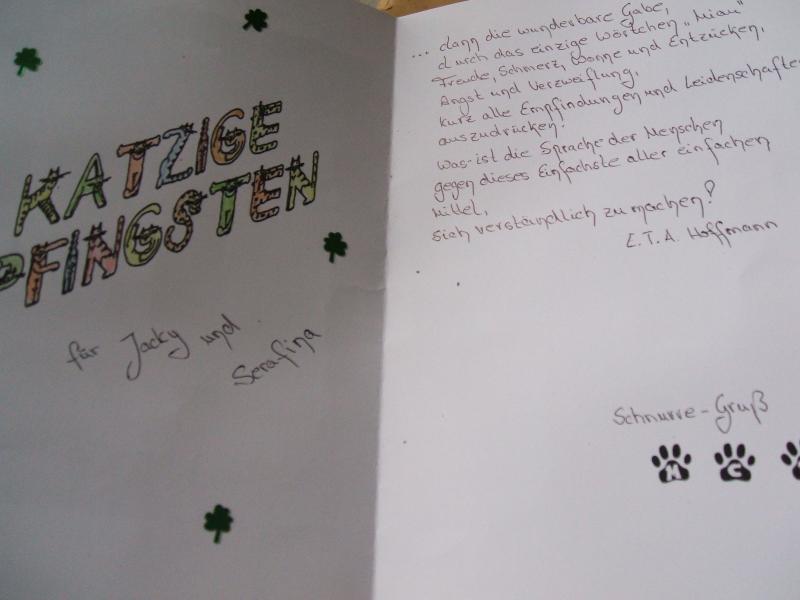 KATZIGE
PFINGSTEN
für Jacky und
Serafina
... dann die wunderbare Gabe,
durch das einzige Wörtchen „Miau"
Freude, Schmerz, Wonne und Entzücken,
Angst und Verzweiflung,
kurz alle Empfindungen und Leidenschaften
auszudrücken.
Was ist die Sprache der Menschen
gegen dieses Einfachste aller einfachen
Mittel,
sich verständlich zu machen?
E.T.A. Hoffmann
Schnurre-Gruß
M C